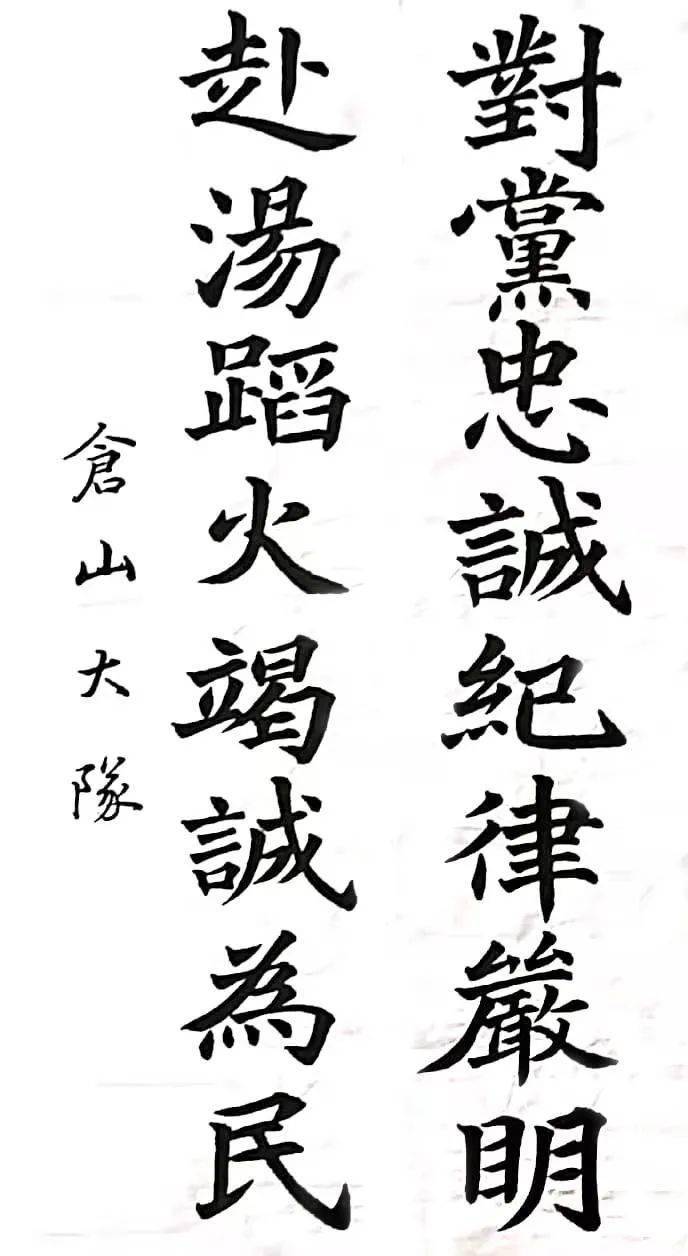 對黨忠誠紀律嚴明
赴湯蹈火竭誠為民
倉山大隊